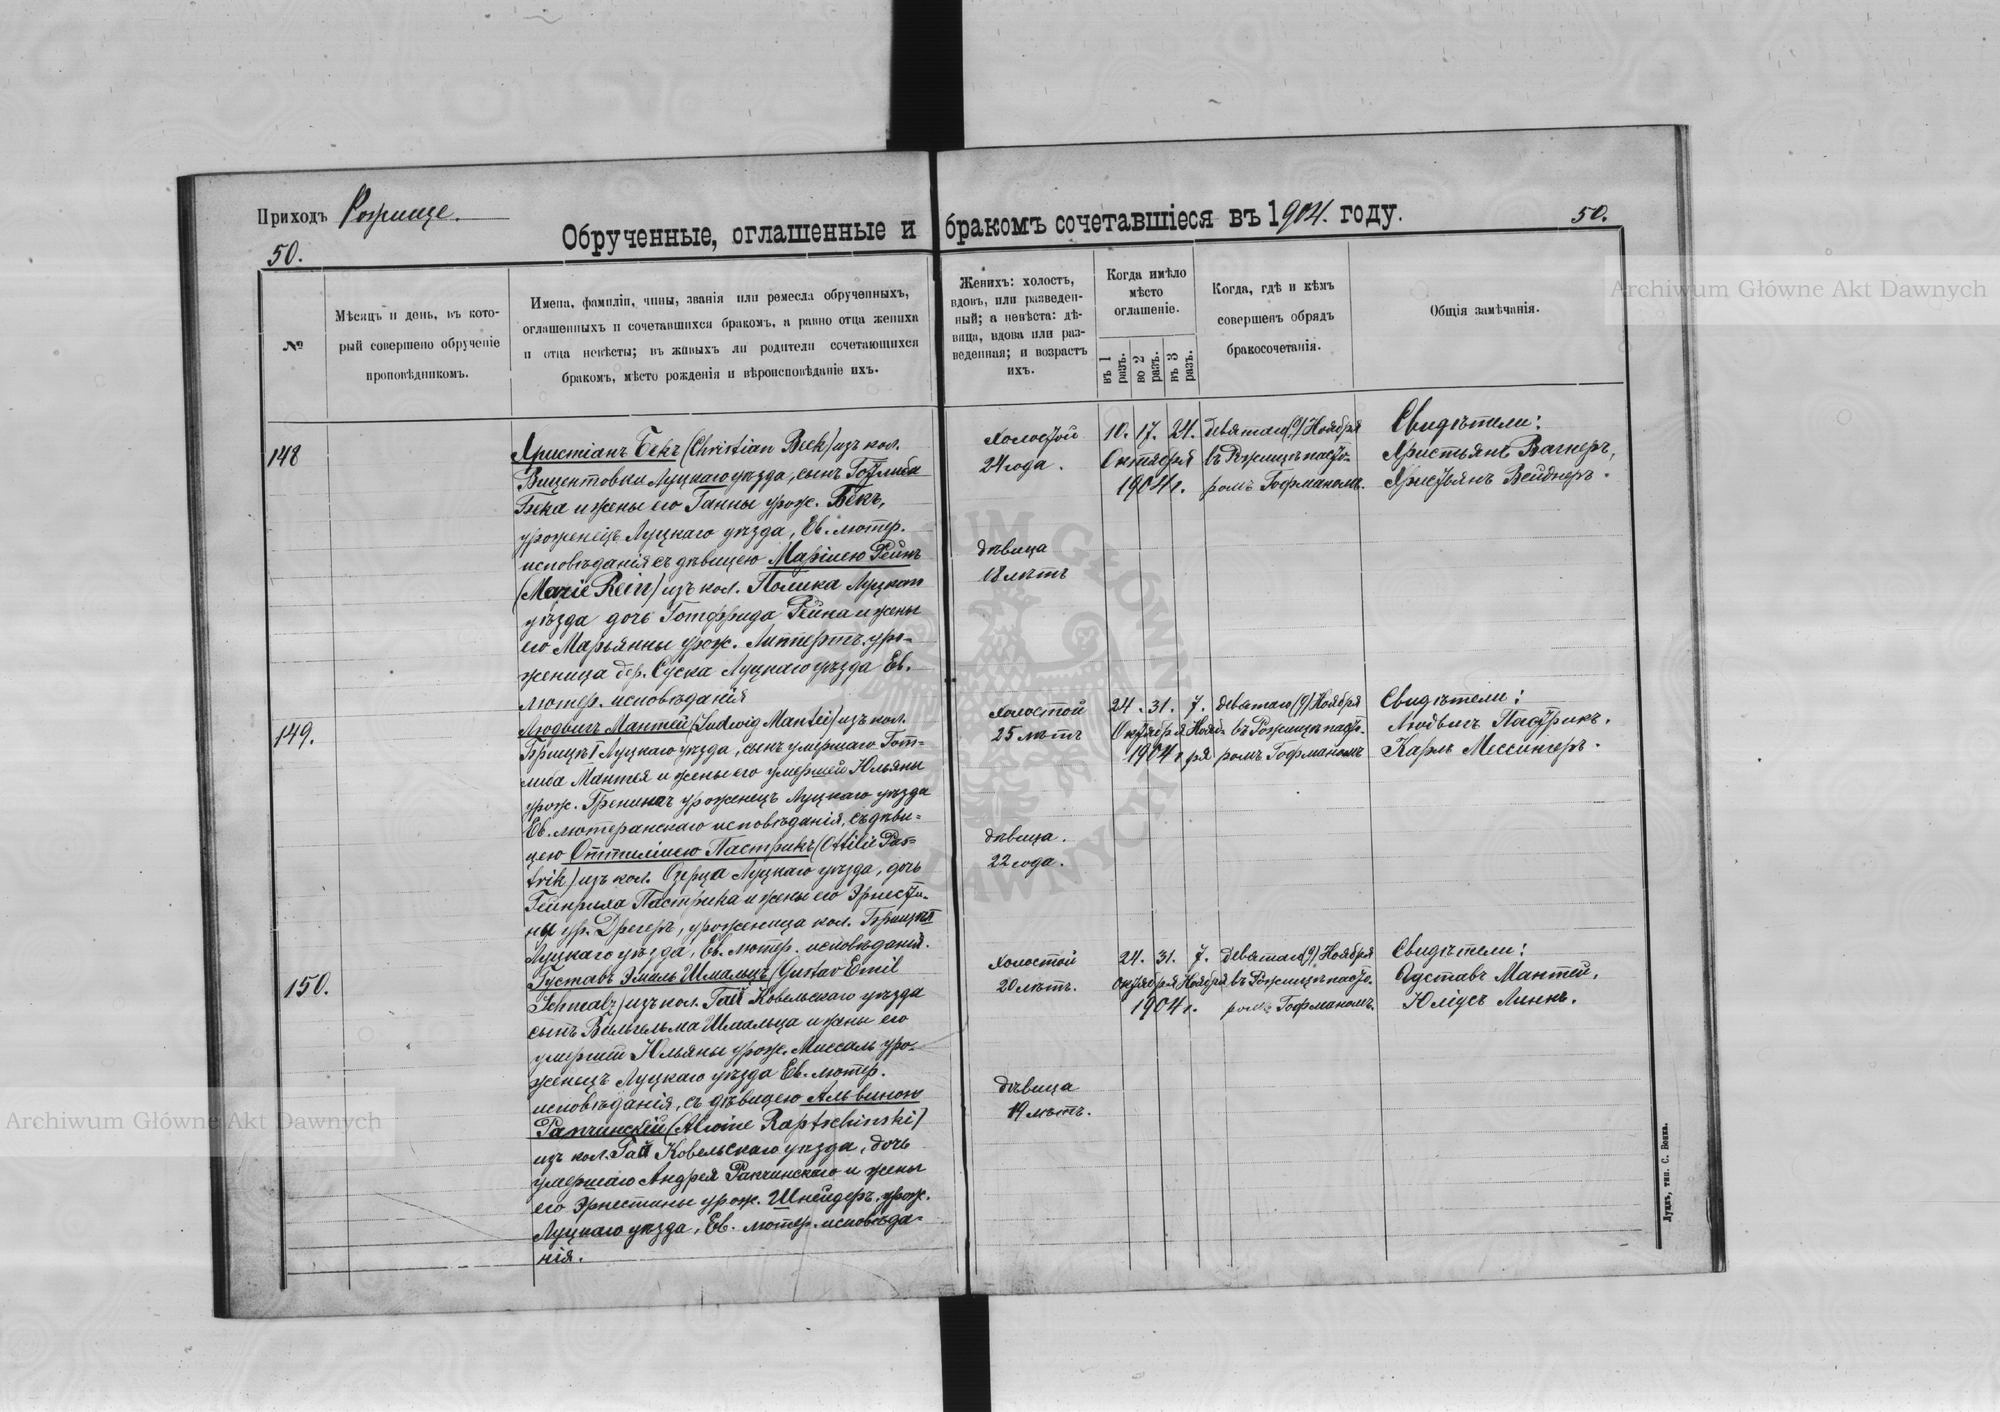 Приходъ Рожище.
50.
Обрученные, оглашенные и бракомъ сочетавшіеся въ 1904. году.
50.
№
Мѣсяцъ и день, въ кото-
рый совершено обрученіе
проповѣдникомъ.
Имена, фамиліи, чины, званія или ремесла обрученныхъ,
оглашенныхъ и сочетавшихся бракомъ, а равно отца жениха
и отца невѣсты; въ живыхъ ли родители сочетающихся
бракомъ, мѣсто рожденія и вѣроисповѣданіе ихъ.
Женихъ: холостъ,
вдовъ, или разведен-
ный; а невѣста: дѣ-
вица, вдова или раз-
веденная; и возрастъ
ихъ.
Когда имѣло
мѣсто
оглашеніе.
въ 1 разъ.
во 2 разъ.
въ 3 разъ.
Когда, гдѣ и кѣмъ
совершенъ обрядъ
бракосочетанія.
Общія замѣчанія.
148
Христіанъ Бекъ (Christian Beck) изъ кол.
Вицентовки Луцкаго уѣзда, сынъ Готлиба
Бека и жены его Ганны урож. Бекъ,
уроженецъ Луцкаго уѣзда, Ев. лютер.
исповѣданія съ дѣвицею Маріею Рейнъ
(Marie Rein) изъ кол. Полика Луцкаго
уѣзда дочь Готфрида Рейна и жены
его Марьянны урож. Липпертъ, уро-
женица дер. Суска Луцкаго уѣзда Ев.
лютер. исповѣданія
Холостой
24 года.
дѣвица
18 лѣтъ
10. 17. 24.
Октября
1904 г.
девятаго (9) Ноября
въ Рожищѣ пасто-
ромъ Гофманомъ.
Свидѣтели:
Христьянъ Вагнеръ,
Христьянъ Вейднеръ.
149.
Людвигъ Мантей (Ludwig Mantei) изъ кол.
Брищъ I Луцкаго уѣзда, сынъ умершаго Гот-
либа Мантея и жены его умершей Юльяны
урож. уроженецъ Луцкаго уѣзда
Ев. лютеранскаго исповѣданія, съ дѣви-
цею Оттиліею Пастрикъ (Ottilie Pas-
trik) изъ кол. Озерца Луцкаго уѣзда, дочь
Гейнриха Пастрика и жены его Эрнести-
ны ур. Дрегеръ, уроженица кол.
Луцкаго уѣзда, Ев. лютер. исповѣданія.
Холостой
25 лѣтъ
дѣвица.
22 года.
24. 31. 7.
Октября Нояб-
1904 г. ря
девятаго (9) Ноября
въ Рожищѣ пасто-
ромъ Гофманомъ
Свидѣтели:
Людвигъ Пастрикъ.
Карлъ Мессингеръ.
150.
Густавъ Эмиль Шмальцъ (Gustav Emil
Schmalz) изъ кол. Гай Ковельскаго уѣзда
сынъ Вильгельма Шмальца и жены его
умершей Юльяны урож. Миссаль уро-
женецъ Луцкаго уѣзда Ев. лютер.
исповѣданія, съ дѣвицею Альвиною
Рапчинскій (Alwine Raptschinski)
изъ кол. Гай Ковельскаго уѣзда, дочь
умершаго Андрея Рапчинскаго и жены
его Эрнестины урож. Шнейдеръ, урож.
Луцкаго уѣзда, Ев. лютер. исповѣда-
нія.
Холостой
20 лѣтъ.
дѣвица
19 лѣтъ.
24. 31. 7.
Октября Ноября
1904 г.
девятаго (9) Ноября
въ Рожищѣ пасто-
ромъ Гофманомъ.
Свидѣтели:
Густавъ Мантей,
Юліусъ Линкъ.
Луцкъ, тип. С. Бокка.
Archiwum Główne Akt Dawnych
Archiwum Główne Akt Dawnych